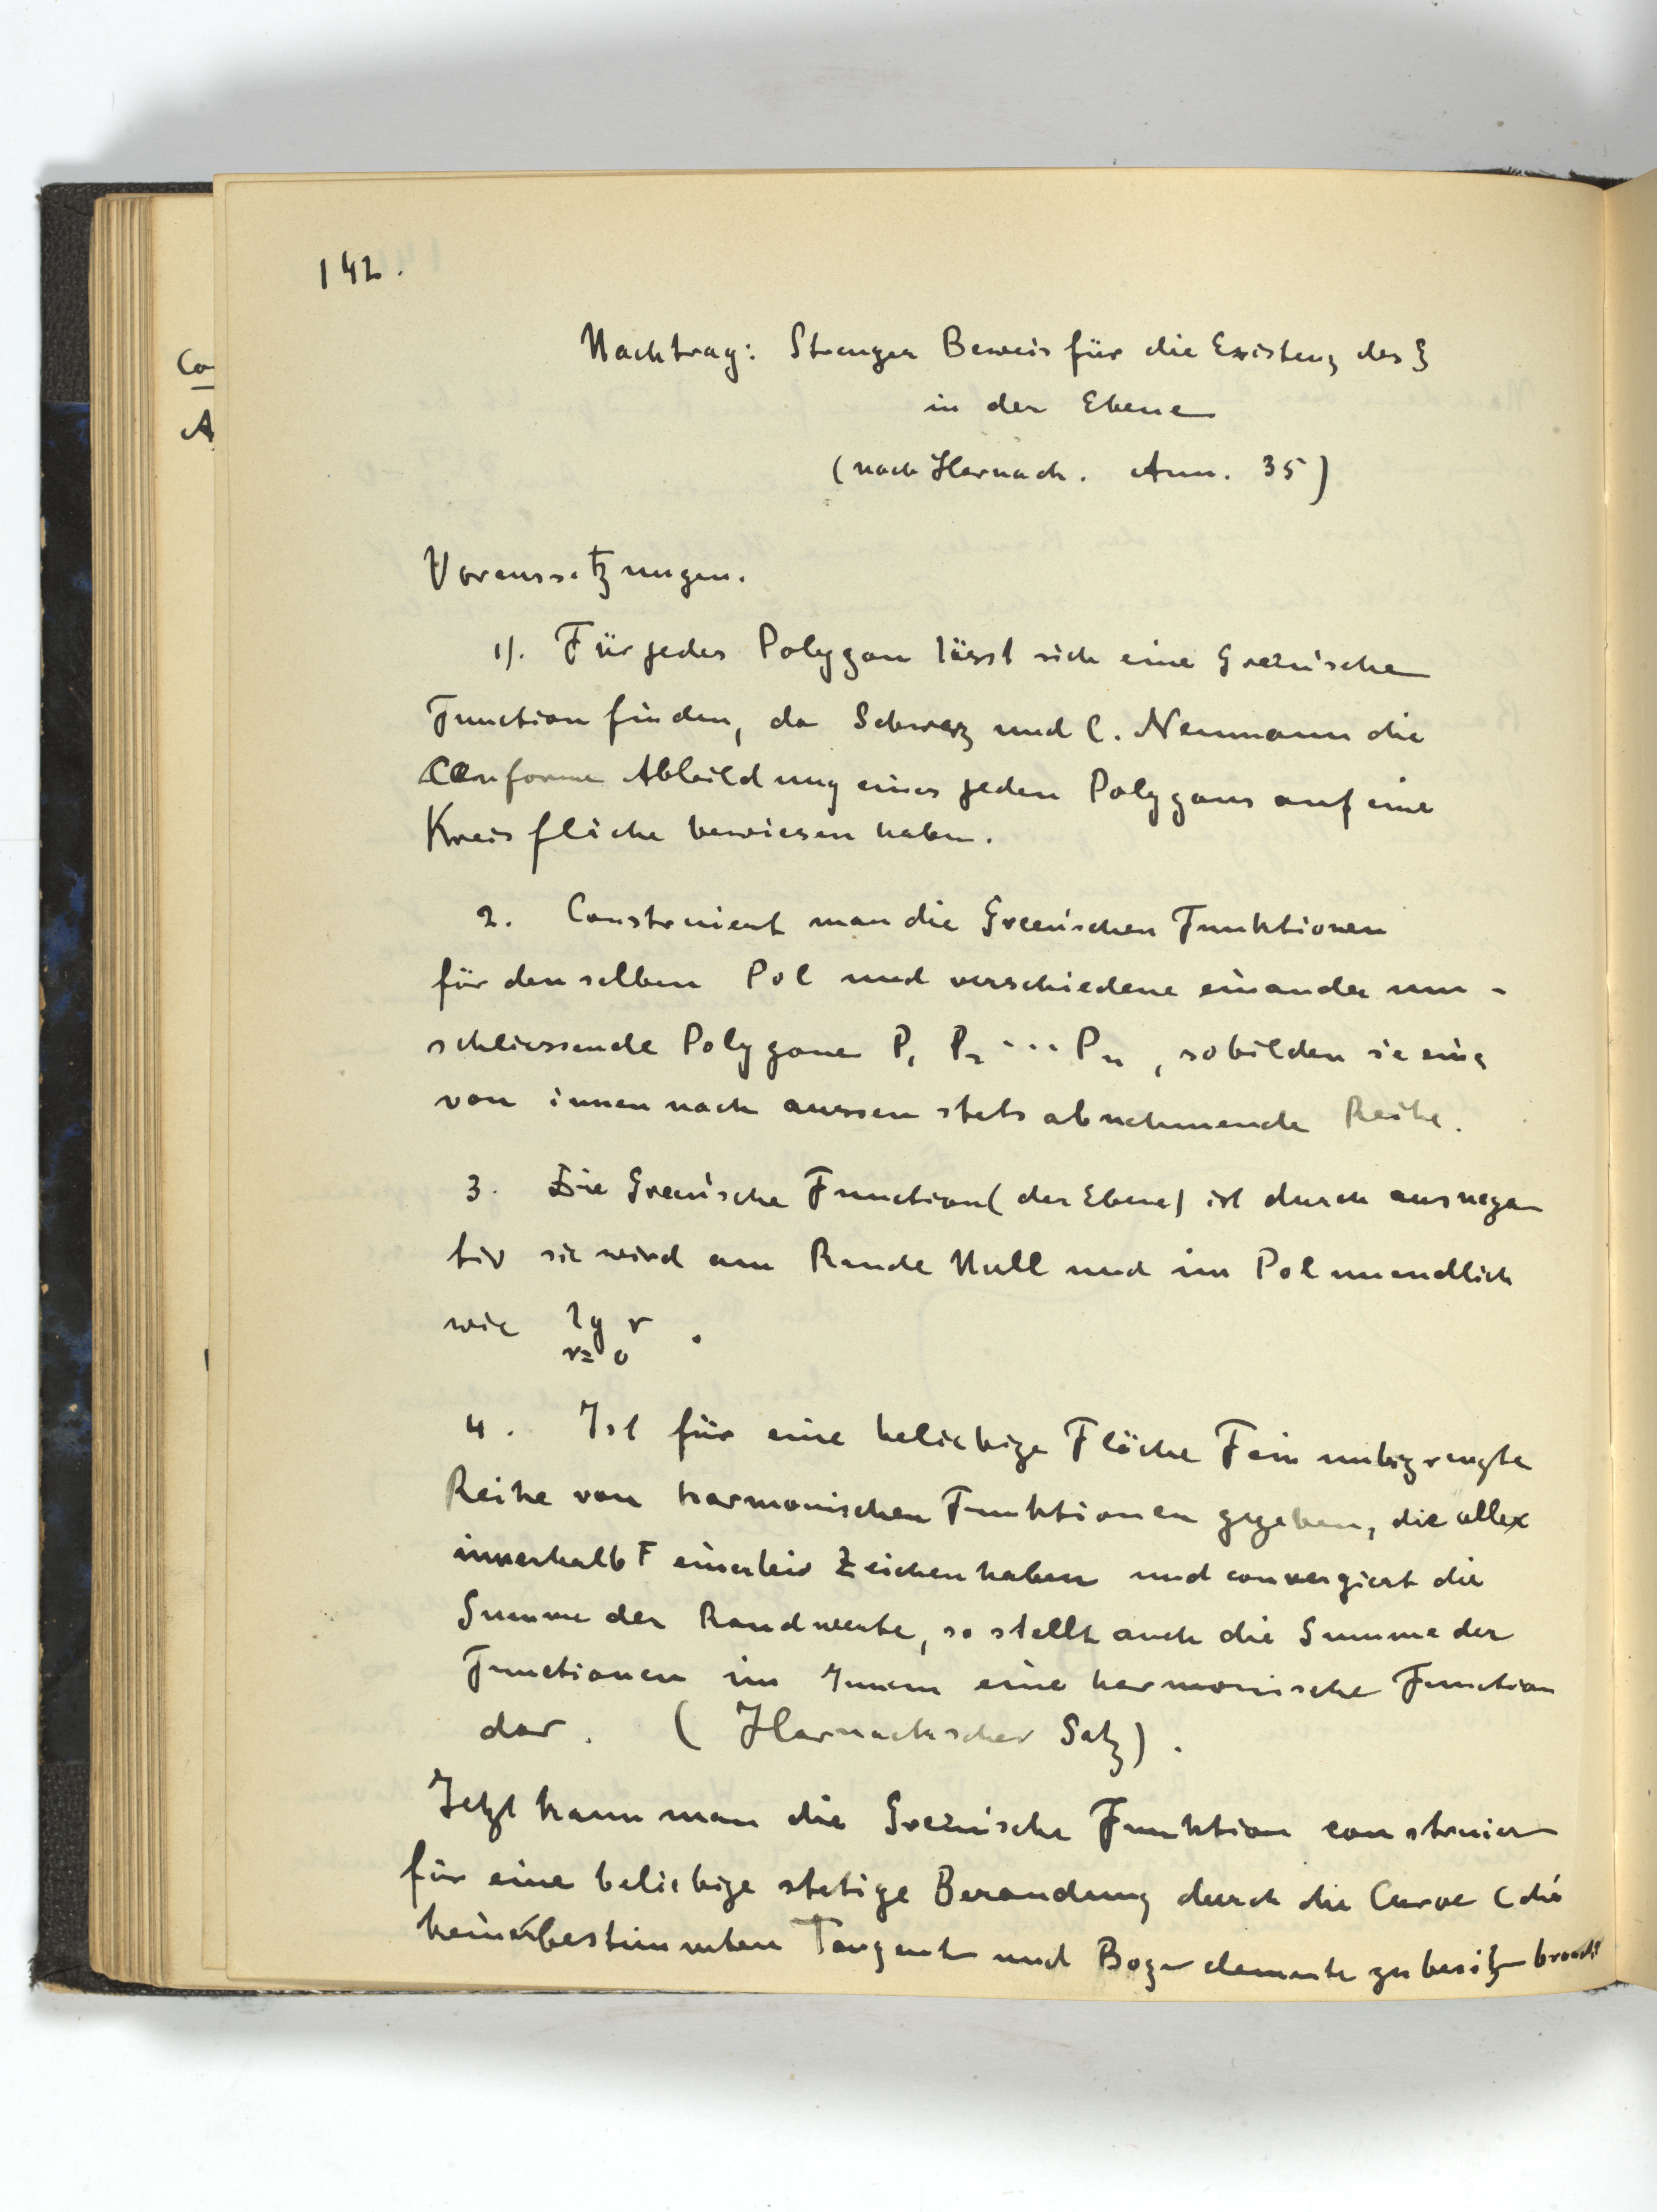 142.
Co
A
Nachtrag: Strenger Beweis für die Existenz des G
in der Ebene
(nach Harnack. Ann. 35)
Voraussetzungen.
1). Für jedes Polygon lässt sich eine Greensche
Function finden, da Schwarz und C. Neumann die
conforme Abbildung eines jeden Polygons auf eine
Kreisfläche bewiesen haben.
2. Construiert man die Greenschen Funktionen
für denselben Pol und verschiedene einander um-
schliessende Polygone P₁ P₂ ... Pₙ, so bilden sie eine
von innen nach aussen stets abnehmende Reihe.
3. Die Greensche Function (der Ebene) ist durchaus nega
tiv sie wird am Rande Null und im Pol unendlich
wie lg r .
r=0
4. Ist für eine beliebige Fläche F ein unbegrenzte
Reihe von harmonischen Funktionen gegeben, die alle
innerhalb F einerlei Zeichen haben und convergiert die
Summe der Randwerte, so stellt auch die Summe der
Functionen im Innern eine harmonische Function
dar. (Harnackscher Satz).
Jetzt kann man die Greensche Funktion construier
für eine beliebige stetige Berandung durch die Curve C die
keine bestimmten Tangent und Bogenelemente zu besitzen braucht